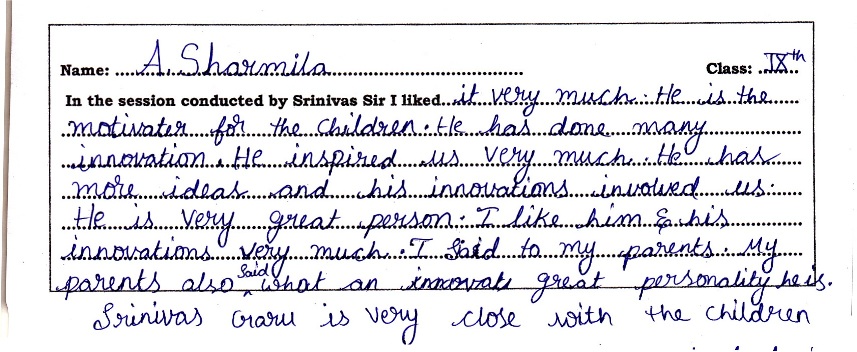 Name: A. Sharmila Class: IXth
In the session conducted by Srinivas Sir I liked it very much. He is the
motivater for the children. He has done many
innovation. He inspired us very much. He has
more ideas and his innovations involved us.
He is very great person. I like him & his
innovations very much. I said to my parents. My
parents also said what an innovate great personality he is.
Srinivas Garu is very close with the children